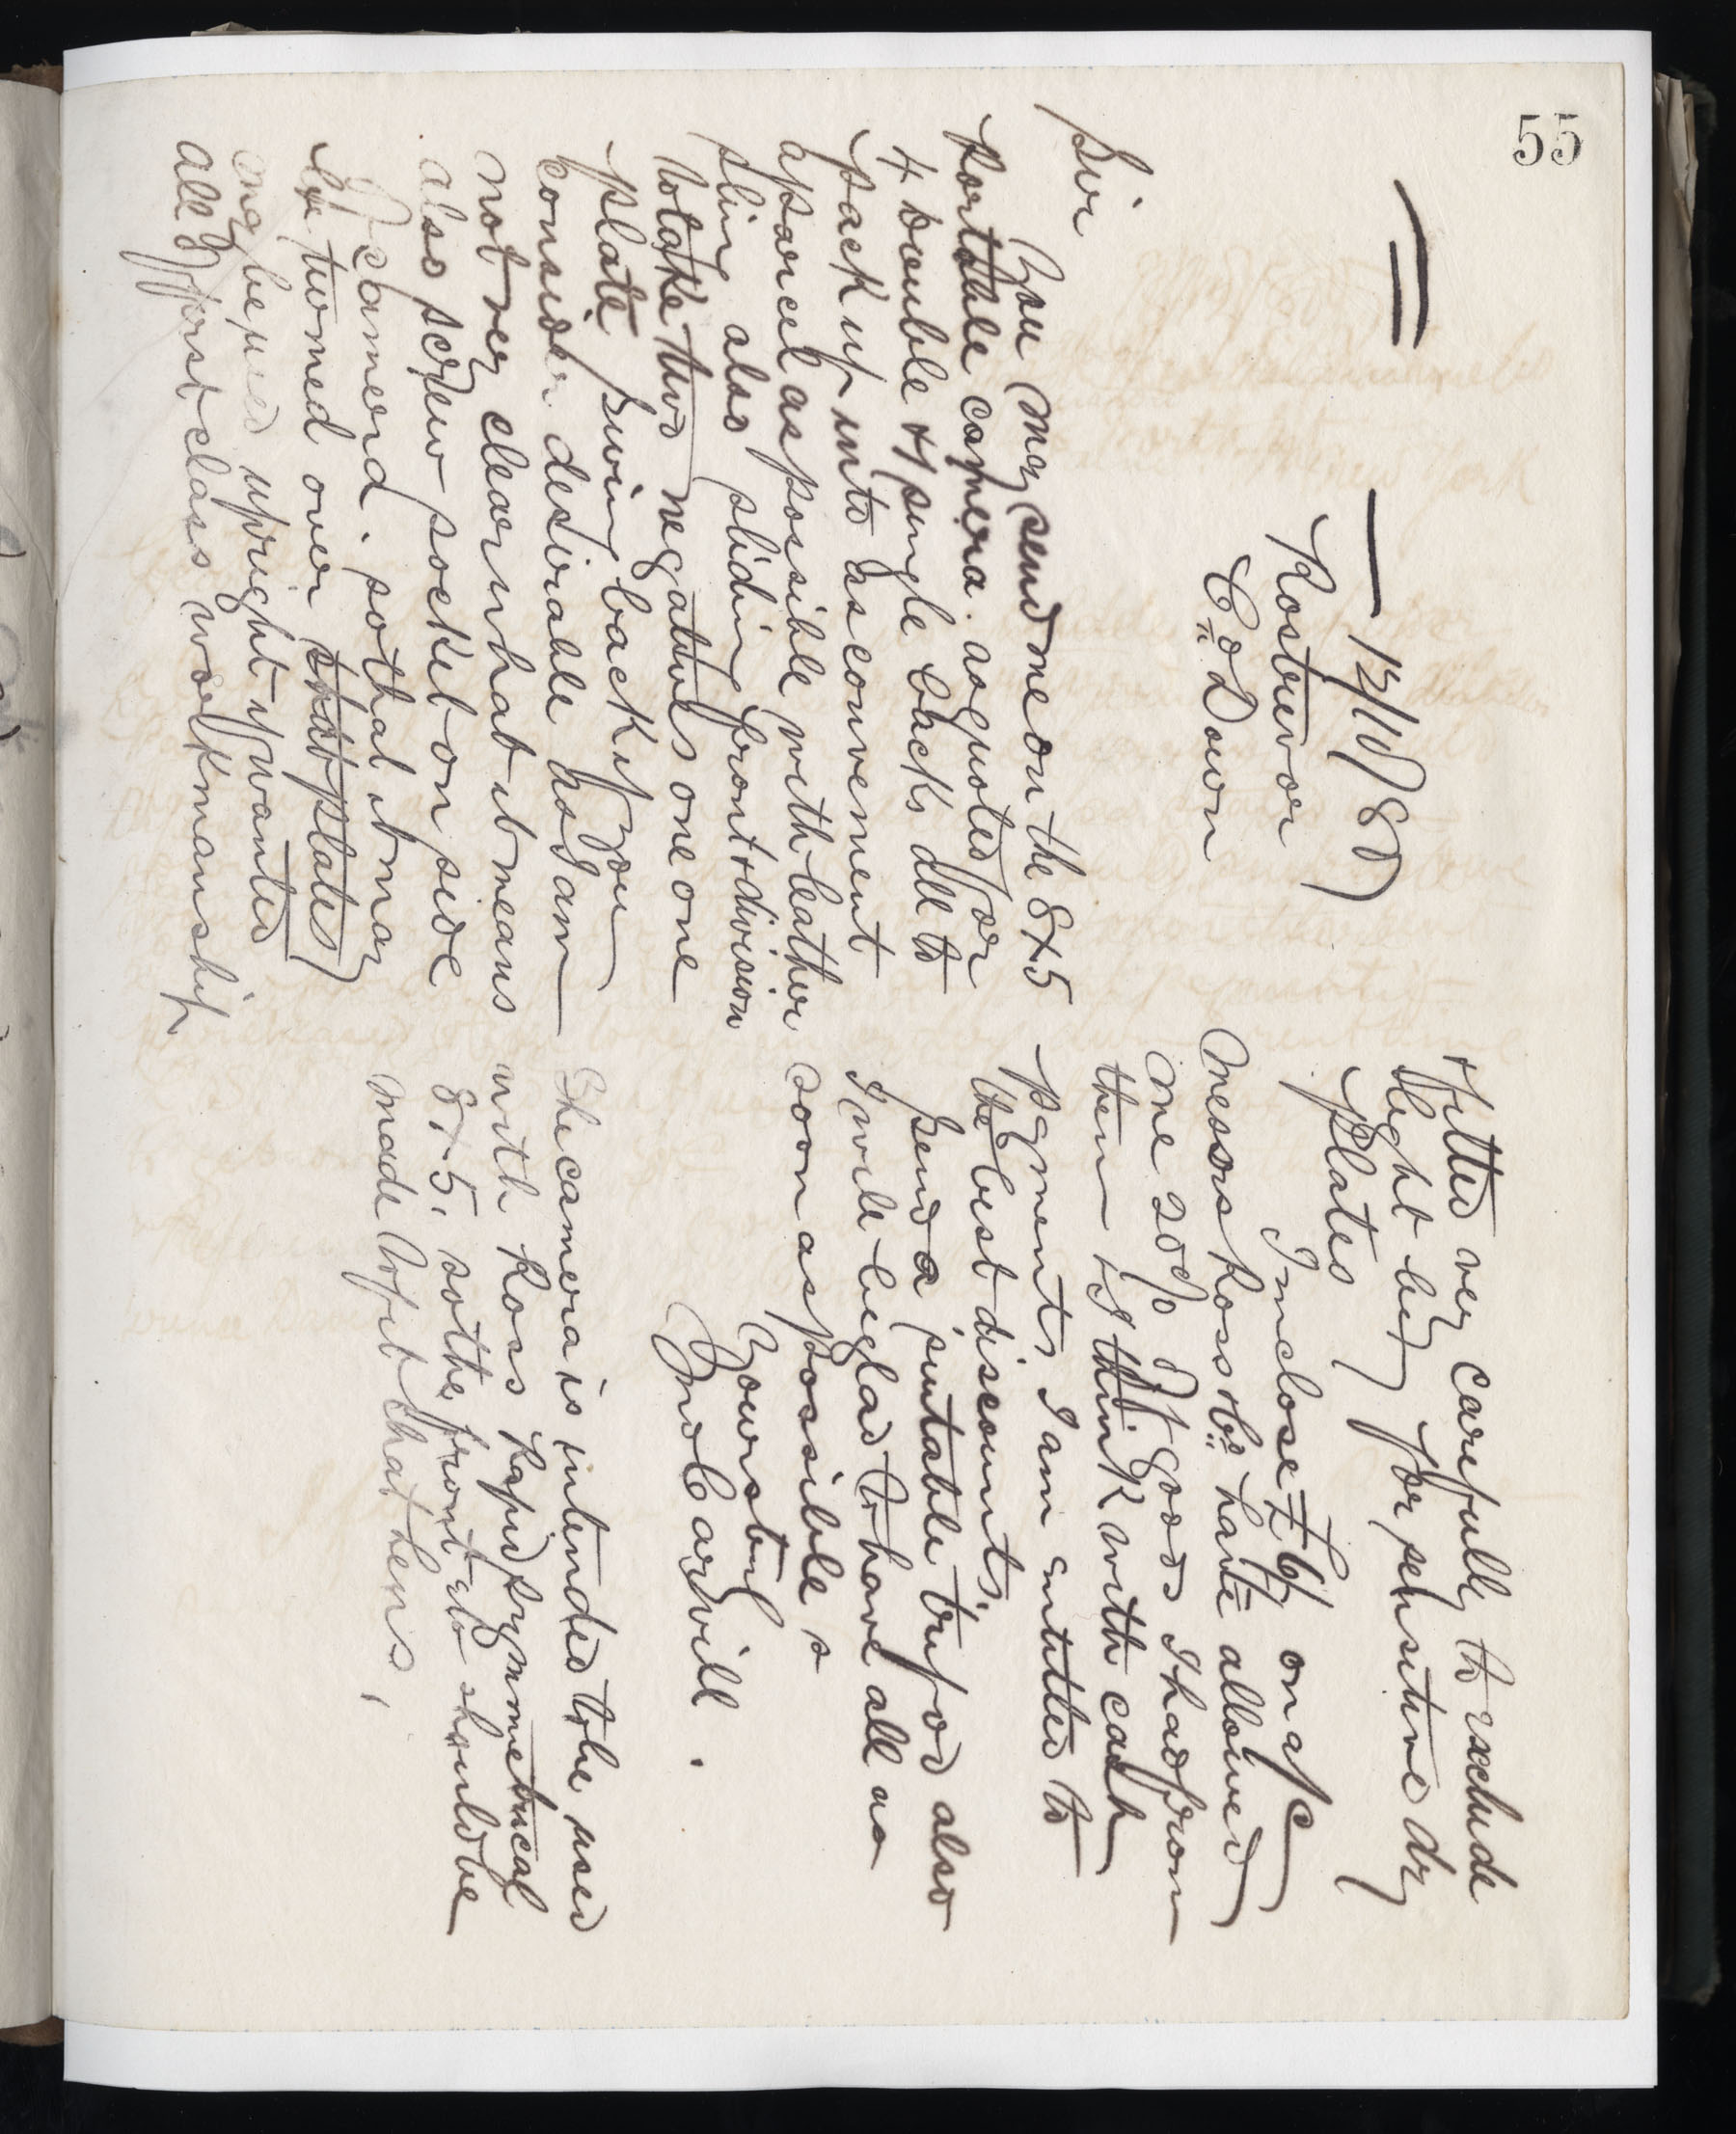 55
12/10/80
Rostrevor
Co Down
Sir
You may send me on the 8x5
portable camera. as quoted for
4 double & 1 single backs all to
pack up into as convenient
a parcel as possible with leather
sling also sliding front & division
to take two negatives one one
plate, swing back if you
consider desirable as I am
not very clear what it means
also screw socket on side
of camera. so that it may
be turned over that plates
may be used upright if wanted
all of first class workmanship
& fitted very carefully to exclude
light being for sensitive dry
plates
I inclose £6/ on a/c
Messrs Ross & Co have allowed
me 20% of goods I had from
them & I think with cash
payments I am intitled to
the best discounts,
Send a suitable tripod also
I will be glad to have all as
soon as possible &
Yours truly
Jno Carvill.
The camera is intended to be used
with Ross Rapid symmetrical
8x5, so the front also should be
made to fit that lens,